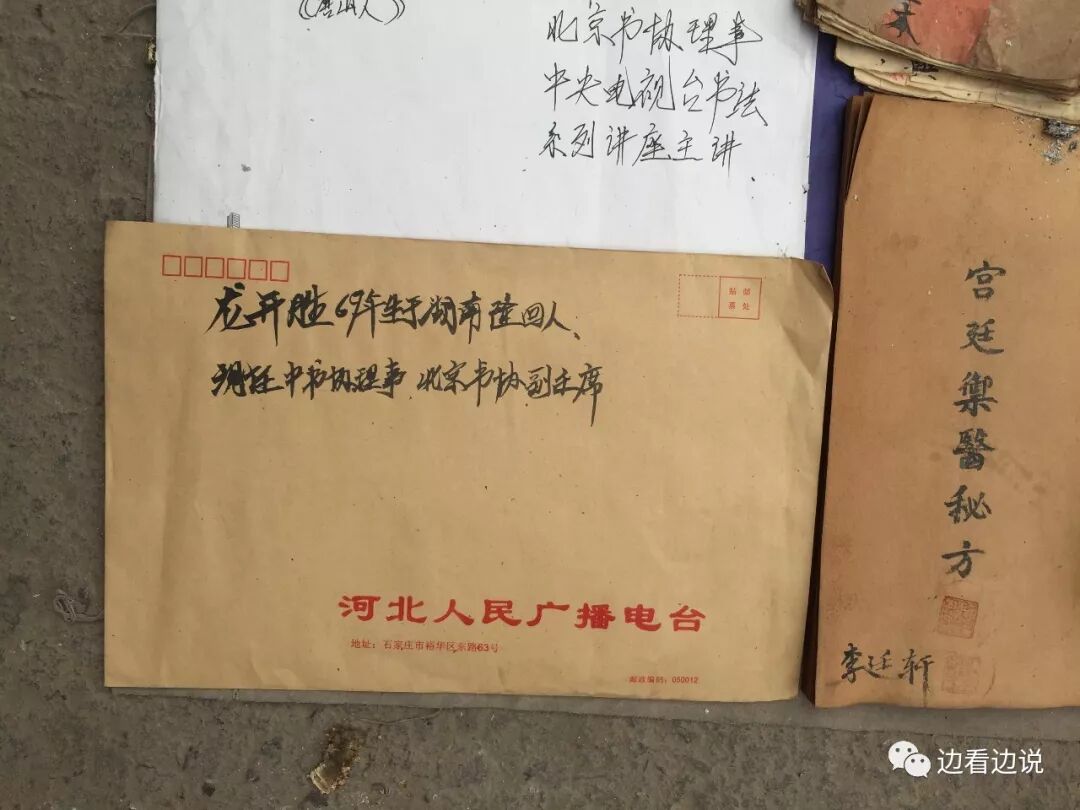 （唐山人）
北京书协理事
中央电视台书法
系列讲座主讲
贴邮
票处
龙开胜69年生于湖南隆回人、
现任中书协理事、北京书协副主席
河北人民广播电台
地址：石家庄市裕华区东路63号
邮政编码：050012
宫廷禦醫秘方
李廷轩
边看边说